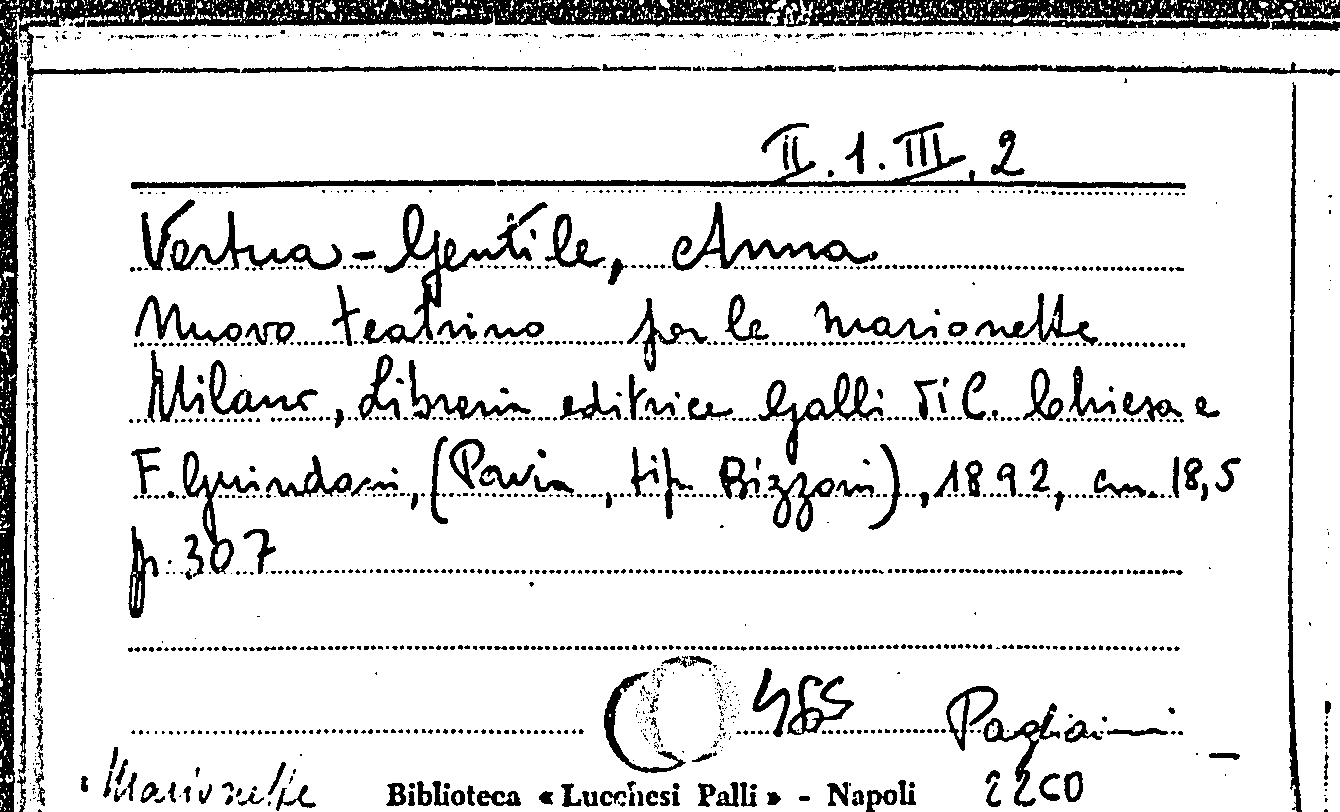 II.1.III.2
Vertua-Gentile, Anna
Nuovo teatrino per le marionette
Milano, Libreria editrice Galli di C. Chiesa e
F. Guindani, (Pavia, tip. Bizzoni), 1892, cm. 18,5
p. 307
Pagliaini
Marionette Biblioteca « Lucchesi Palli » - Napoli 2260